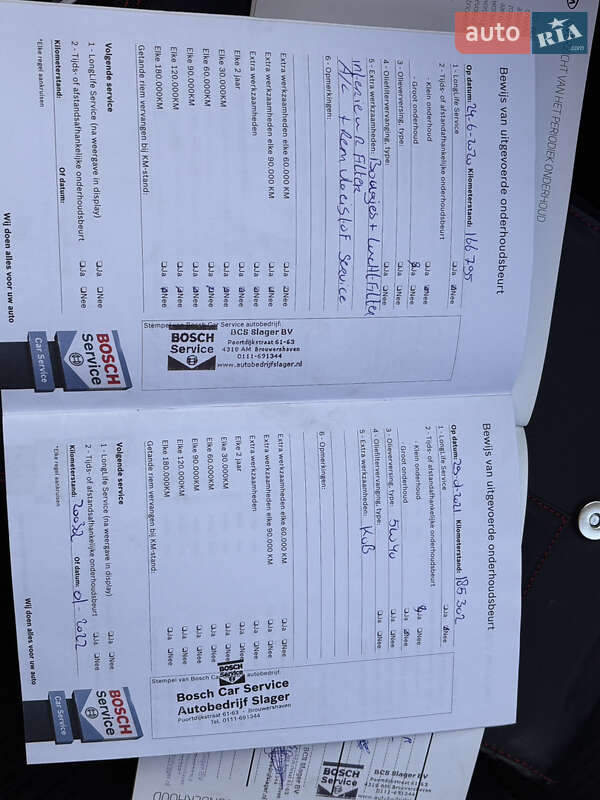 auto RIA.com
CHT VAN HET PERIODIEK ONDERHOUD
Bewijs van uitgevoerde onderhoudsbeurt
Op datum: 24-6-2020 Kilometerstand: 166795
1 - LongLife Service ❑Ja ❑Nee
2 - Tijds- of afstandsafhankelijke onderhoudsbeurt
- Klein onderhoud ❑Ja ❑Nee
- Groot onderhoud ❑Ja ❑Nee
3 - Olieverversing, type: ❑Ja ❑Nee
4 - Oliefilterverversing, type: ❑Ja ❑Nee
5 - Extra werkzaamheden: Bougies + Luchtfilter
Interieur Filter
A/c + Remvloeistof Service
6 - Opmerkingen:
Extra werkzaamheden elke 60.000 KM ❑Ja ❑Nee
Extra werkzaamheden elke 90.000 KM ❑Ja ❑Nee
Extra werkzaamheden
Elke 2 jaar ❑Ja ❑Nee
Elke 30.000KM ❑Ja ❑Nee
Elke 60.000KM ❑Ja ❑Nee
Elke 90.000KM ❑Ja ❑Nee
Elke 120.000 KM ❑Ja ❑Nee
Elke 180.000KM ❑Ja ❑Nee
Getande riem vervangen bij KM-stand:
Stempel van Bosch Car Service autobedrijf
BOSCH
Service
BCS Slager BV
Poortdijkstraat 61-63
4318 AM Brouwershaven
0111-691344
www.autobedrijfslager.nl
Volgende service
1 - LongLife Service (na weergave in display) ❑Ja ❑Nee
2 - Tijds- of afstandsafhankelijke onderhoudsbeurt ❑Ja ❑Nee
Kilometerstand: Of datum:
*Elke regel aankruisen
BOSCH
Service
Car Service
Wij doen alles voor uw auto
Bewijs van uitgevoerde onderhoudsbeurt
Op datum: 2021 Kilometerstand: 185302
1 - LongLife Service ❑Ja ❑Nee
2 - Tijds- of afstandsafhankelijke onderhoudsbeurt
- Klein onderhoud ❑Ja ❑Nee
- Groot onderhoud ❑Ja ❑Nee
3 - Olieverversing, type: 5W40 ❑Ja ❑Nee
4 - Oliefilterverversing, type: ❑Ja ❑Nee
5 - Extra werkzaamheden:
6 - Opmerkingen:
Extra werkzaamheden elke 60.000 KM ❑Ja ❑Nee
Extra werkzaamheden elke 90.000 KM ❑Ja ❑Nee
Extra werkzaamheden
Elke 2 jaar ❑Ja ❑Nee
Elke 30.000KM ❑Ja ❑Nee
Elke 60.000KM ❑Ja ❑Nee
Elke 90.000KM ❑Ja ❑Nee
Elke 120.000KM ❑Ja ❑Nee
Elke 180.000KM ❑Ja ❑Nee
Getande riem vervangen bij KM-stand:
Stempel van Bosch Car autobedrijf
BOSCH
Service
Bosch Car Service
Autobedrijf Slager
Poortdijkstraat 61-63 - Brouwershaven
Tel. 0111-691344
Volgende service
1 - LongLife Service (na weergave in display) ❑Ja ❑Nee
2 - Tijds- of afstandsafhankelijke onderhoudsbeurt ❑Ja ❑Nee
Kilometerstand: Of datum: 01-2022
*Elke regel aankruisen
BOSCH
Service
Car Service
Wij doen alles voor uw auto
BOSCH
Service
BCS Slager BV
Poortdijkstraat 61-63
4318 AM Brouwershaven
0111-691344